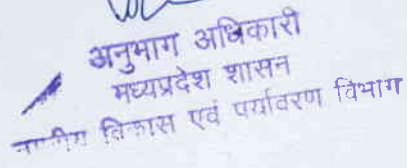 अनुभाग अधिकारी
मध्यप्रदेश शासन
विकास एवं पर्यावरण विभाग